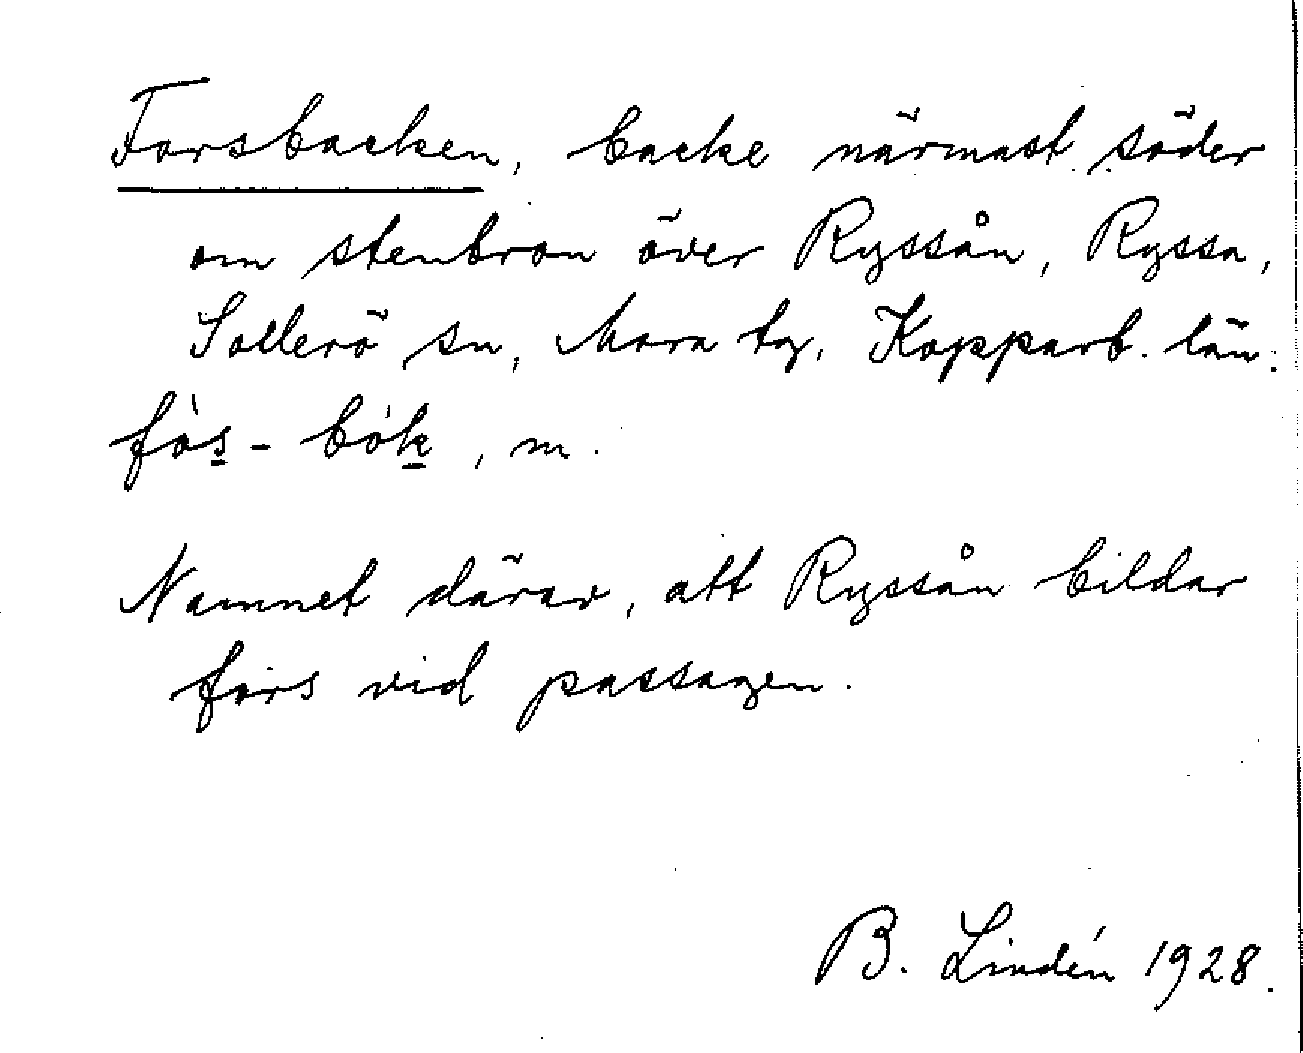 Forsbacken, backe närmast söder
om stenbron över Ryssån, Ryssa,
Sollerö sn, Mora tg, Kopparb. län.
fòs̲ - bók̲, m.
Namnet därav, att Ryssån bildar
fors vid passagen.
B. Lindén 1928.